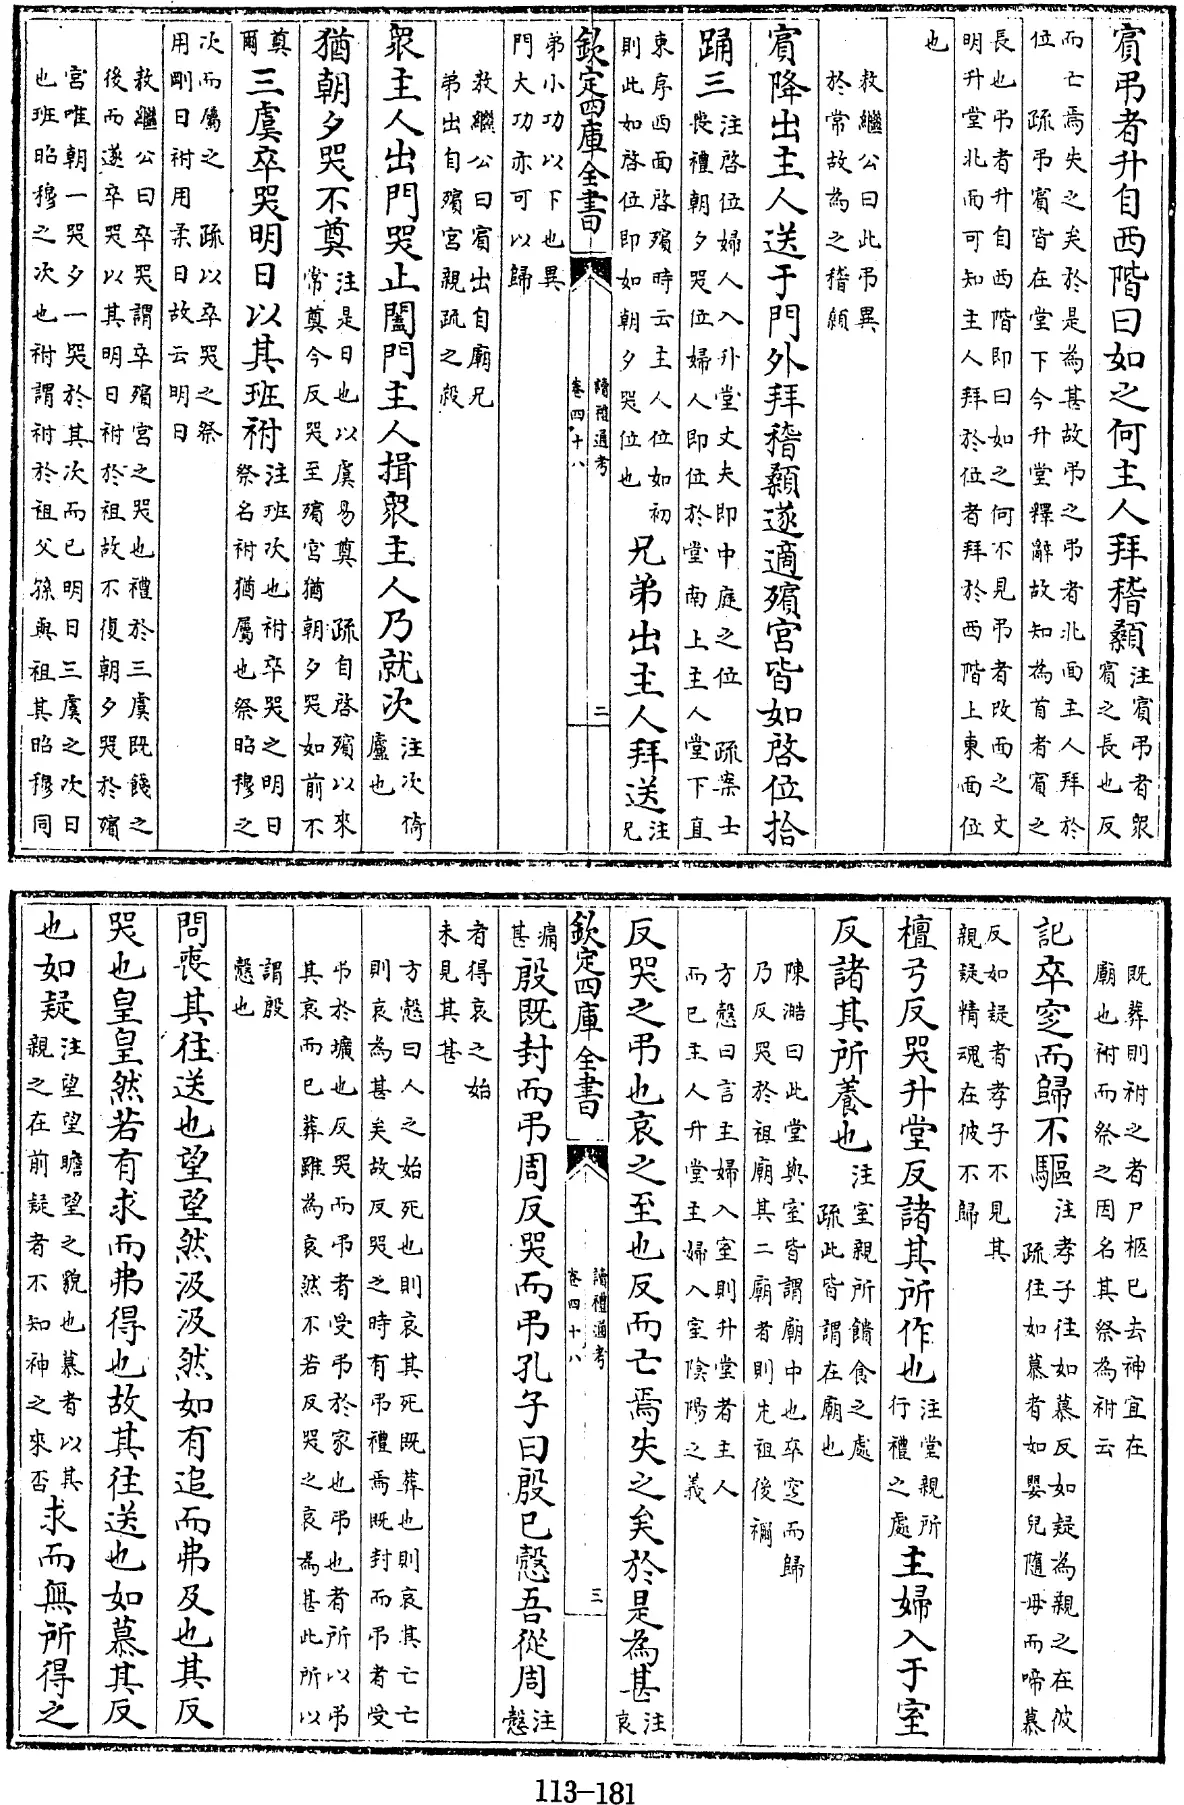 賓弔者升自西階曰如之何主人拜稽顙注賓弔者衆賓之長也反
而亡焉失之矣於是為甚故弔之弔者北面主人拜於
位　疏弔賓皆在堂下今升堂釋辭故知為首者賓之
長也弔者升自西階即曰如之何不見弔者改面之文
明升堂北而可知主人拜於位者拜於西階上東面位
也
敖繼公曰此弔異
於常故為之稽顙
賓降出主人送于門外拜稽顙遂適殯宮皆如啓位拾
踊三注啓位婦人入升堂丈夫即中庭之位　疏案士喪禮朝夕哭位婦人即位於堂南上主人堂下直
東序西面啓殯時云主人位如初則此如啓位即如朝夕哭位也兄弟出主人拜送注兄
欽定四庫全書　讀禮通考卷四十八　二
弟小功以下也異
門大功亦可以歸
敖繼公曰賓出自廟兄
弟出自殯宮親疏之殺
衆主人出門哭止闔門主人揖衆主人乃就次注次倚廬也
猶朝夕哭不奠注是日也以虞易奠　疏自啓殯以來常奠今反哭至殯宮猶朝夕哭如前不
奠爾三虞卒哭明日以其班祔注班次也祔卒哭之明日祭名祔猶屬也祭昭穆之
次而屬之　疏以卒哭之祭
用剛日祔用柔日故云明日
敖繼公曰卒哭謂卒殯宮之哭也禮於三虞既餞之
後而遂卒哭以其明日祔於祖故不復朝夕哭於殯
宮唯朝一哭夕一哭於其次而已明日三虞之次日
也班昭穆之次也祔謂祔於祖父孫與祖其昭穆同
既葬則祔之者尸柩已去神宜在
廟也祔而祭之因名其祭為祔云
記卒窆而歸不驅注孝子往如慕反如疑為親之在彼　疏往如慕者如嬰兒隨母而啼慕
反如疑者孝子不見其
親疑精魂在彼不歸
檀弓反哭升堂反諸其所作也注堂親所行禮之處主婦入于室
反諸其所養也注室親所饋食之處　疏此皆謂在廟也
陳澔曰此堂與室皆謂廟中也卒窆而歸
乃反哭於祖廟其二廟者則先祖後禰
方慤曰言主婦入室則升堂者主人
而已主人升堂主婦入室陰陽之義
反哭之弔也哀之至也反而亡焉失之矣於是為甚注哀
欽定四庫全書　讀禮通考卷四十八　三
痛甚殷既封而弔周反哭而弔孔子曰殷已慤吾從周注慤
者得哀之始
未見其甚
方慤曰人之始死也則哀其死既葬也則哀其亡亡
則哀為甚矣故反哭之時有弔禮焉既封而弔者受
弔於壙也反哭而弔者受弔於家也弔也者所以弔
其哀而已葬雖為哀然不若反哭之哀為甚此所以
謂殷
慤也
問喪其往送也望望然汲汲然如有追而弗及也其反
哭也皇皇然若有求而弗得也故其往送也如慕其反
也如疑注望望瞻望之貌也慕者以其親之在前疑者不知神之來否求而無所得之
113-181